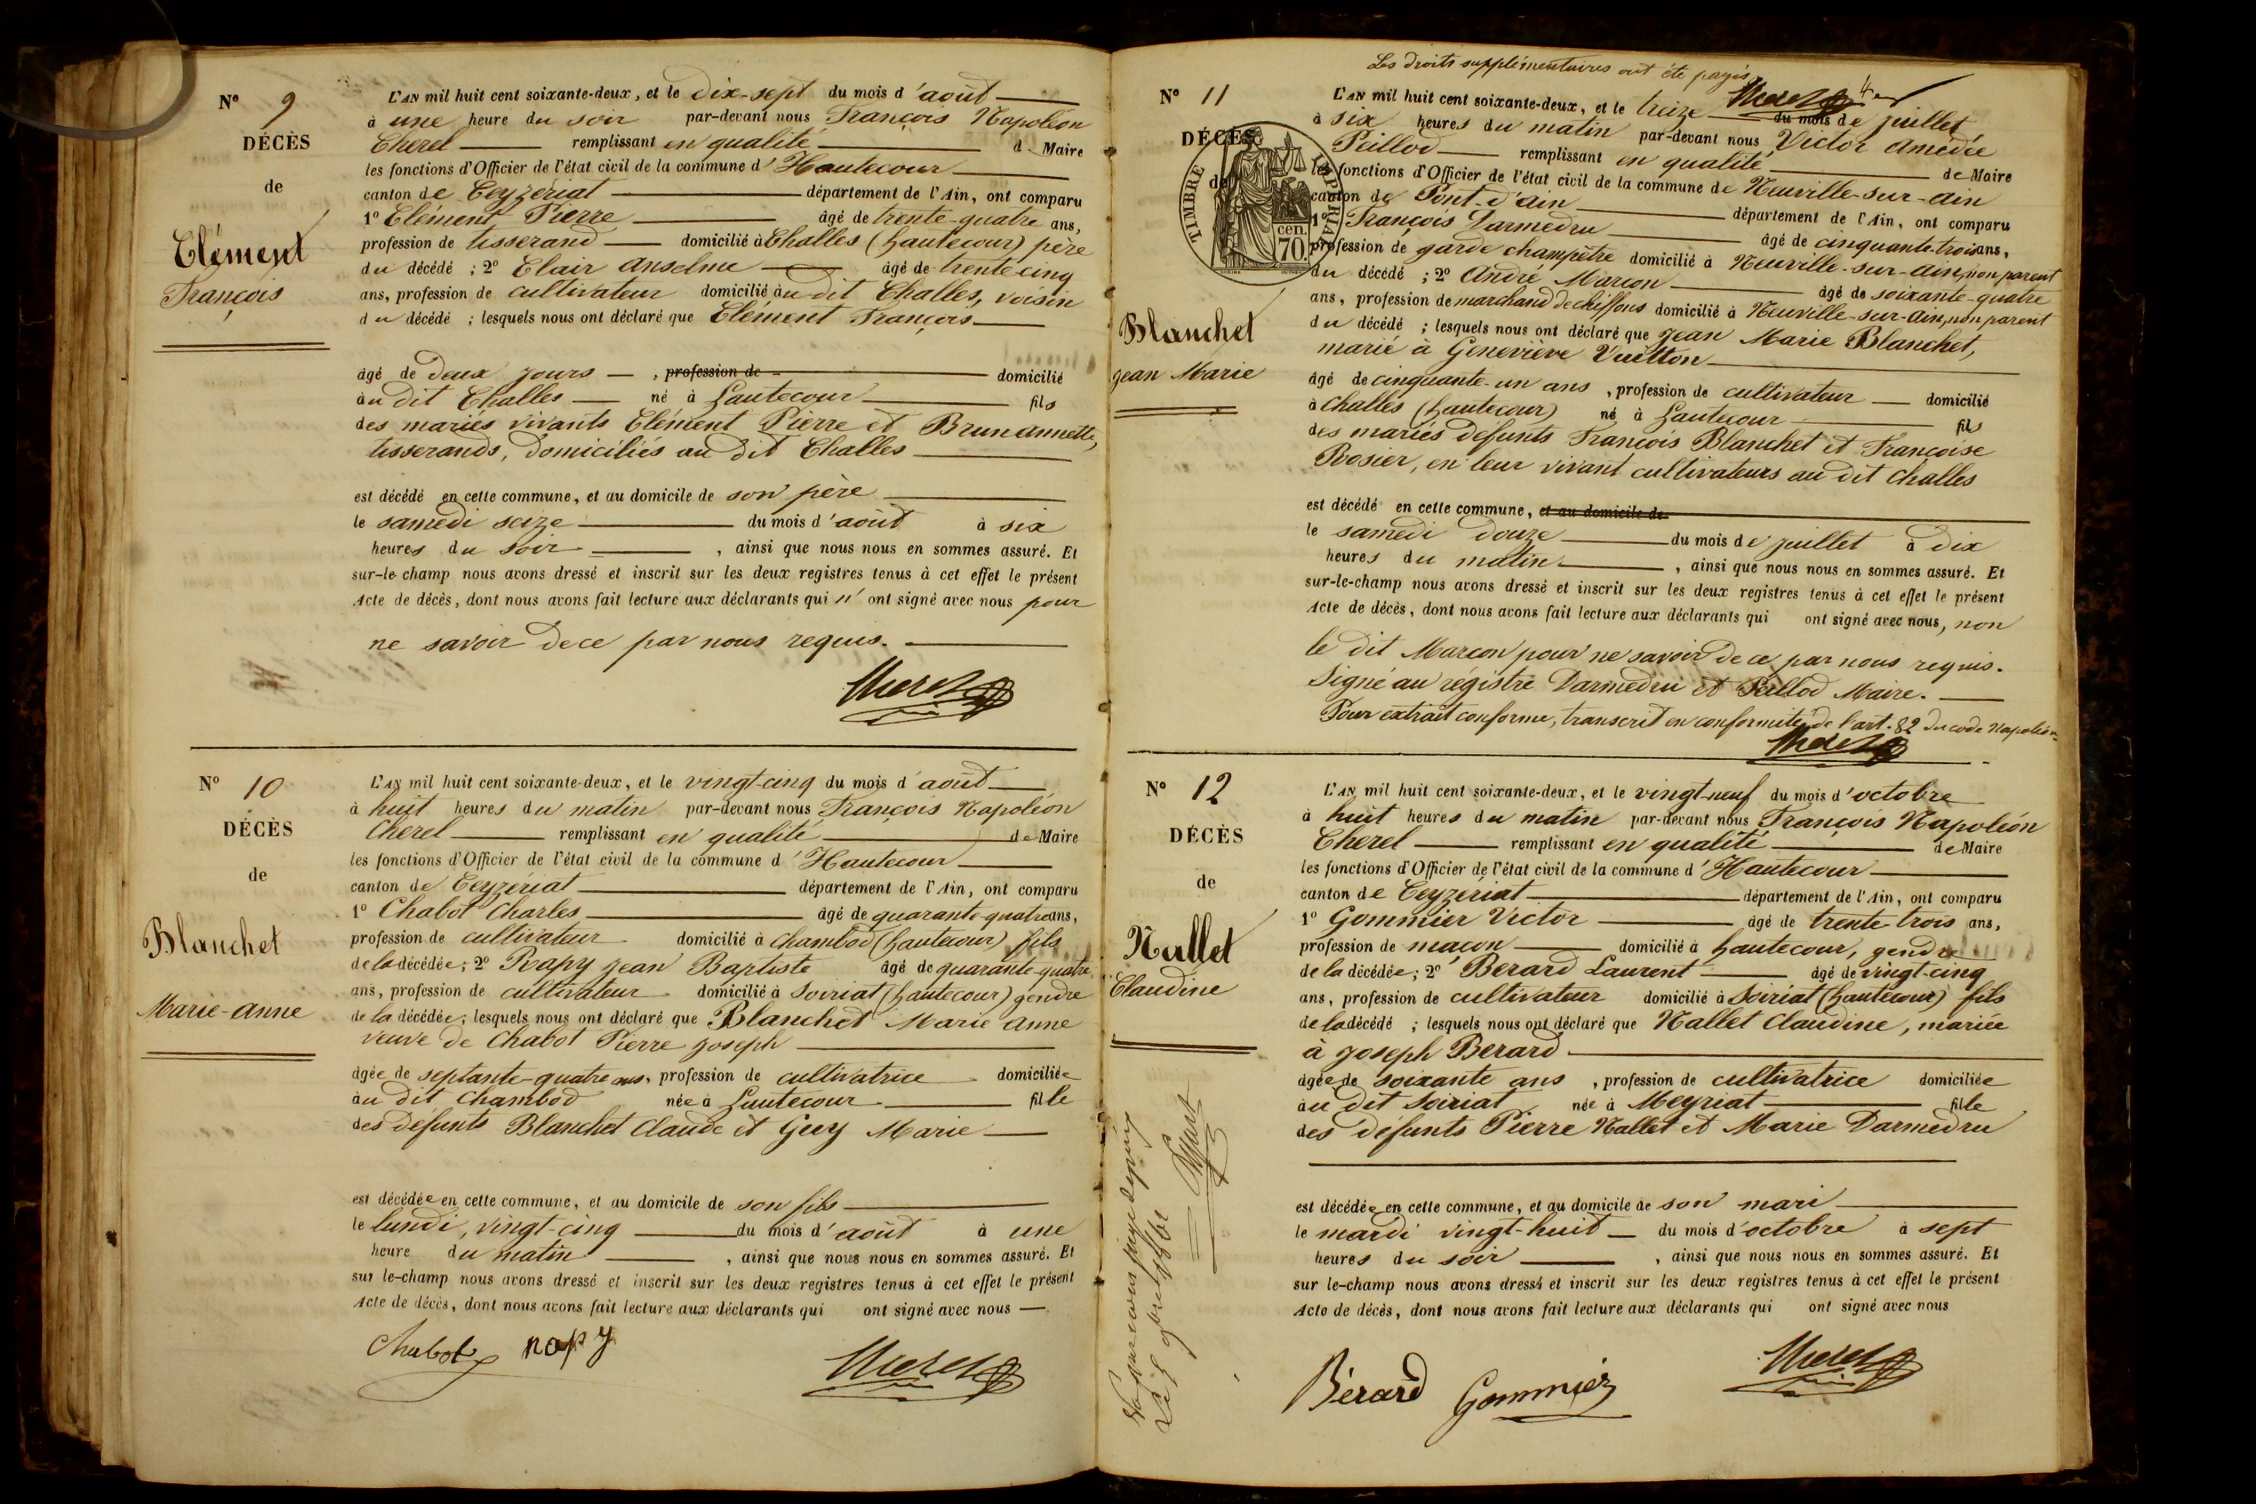 Nº 9
DÉCÈS
de
Clément
François
L'AN mil huit cent soixante-deux, et le dix-sept du mois d'août
à une heure du soir par-devant nous François Napoléon
Cherel remplissant en qualité d Maire
les fonctions d'Officier de l'état civil de la commune d'Hautecour
canton de Ceyzériat département de l'Ain, ont comparu
1º Clément Pierre âgé de trente-quatre ans,
profession de tisserand domicilié à Challes (hautecour) père
du décédé ; 2º Clair Anselme âgé de trente-cinq
ans, profession de cultivateur domicilié àu dit Challes, voisin
du décédé ; lesquels nous ont déclaré que Clément François
âgé de deux jours , profession de domicilié
àu dit Challes né à hautecour fils
des mariés vivants Clément Pierre et Brun annette,
tisserands, domiciliés au dit Challes
est décédé en cette commune, et au domicile de son père
le samedi seize du mois d'août à six
heures du soir , ainsi que nous nous en sommes assuré. Et
sur-le-champ nous avons dressé et inscrit sur les deux registres tenus à cet effet le présent
Acte de décès, dont nous avons fait lecture aux déclarants qui n'ont signé avec nous pour
ne savoir de ce par nous requis.
Cherel
Nº 10
DÉCÈS
de
Blanchet
Marie-anne
L'AN mil huit cent soixante-deux, et le vingt-cinq du mois d'août
à huit heures du matin par-devant nous François Napoléon
Cherel remplissant en qualité de Maire
les fonctions d'Officier de l'état civil de la commune d'Hautecour
canton de Ceyzériat département de l'Ain, ont comparu
1º Chabot Charles âgé de quarante-quatre ans,
profession de cultivateur domicilié à chambod (hautecour) fils
de la décédée ; 2º Rapy jean Baptiste âgé de quarante-quatre
ans, profession de cultivateur domicilié à Soiriat (hautecour) gendre
de la décédée ; lesquels nous ont déclaré que Blanchet Marie anne
veuve de Chabot Pierre joseph
âgée de septante-quatre ans, profession de cultivatrice domiciliée
àu dit chambod née à hautecour fille
des défunts Blanchet Claude et Guy Marie
est décédée en cette commune, et au domicile de son fils
le lundi, vingt-cinq du mois d'août à une
heure du matin , ainsi que nous nous en sommes assuré. Et
sur le-champ nous avons dressé et inscrit sur les deux registres tenus à cet effet le présent
Acte de décès, dont nous avons fait lecture aux déclarants qui ont signé avec nous
Chabot rapy Cherel
Les droits supplémentaires ont été payés
Cherel
Nº 11
DÉCÈS
de
TIMBRE IMPÉRIAL
70 cen.
Blanchet
jean Marie
L'AN mil huit cent soixante-deux, et le treize du mois de juillet
à six heures du matin par-devant nous Victor Amédée
Peillod remplissant en qualité de Maire
les fonctions d'Officier de l'état civil de la commune de Neuville-sur-ain
canton de Pont-d'ain département de l'Ain, ont comparu
1º François Darmedru âgé de cinquante-trois ans,
profession de garde champêtre domicilié à Neuville-sur-ain, non parent
du décédé ; 2º André Marcon âgé de soixante-quatre
ans, profession de marchand de chiffons domicilié à Neuville-sur-Ain, non parent
du décédé ; lesquels nous ont déclaré que jean Marie Blanchet,
marié à Geneviève Vuitton
âgé de cinquante-un ans , profession de cultivateur domicilié
à Challes (hautecour) né à hautecour fils
des mariés défunts François Blanchet et Françoise
Rosier, en leur vivant cultivateurs au dit Challes
est décédé en cette commune, et au domicile de
le samedi douze du mois de juillet à dix
heures du matin , ainsi que nous nous en sommes assuré. Et
sur-le-champ nous avons dressé et inscrit sur les deux registres tenus à cet effet le présent
Acte de décès, dont nous avons fait lecture aux déclarants qui ont signé avec nous, non
le dit Marcon pour ne savoir de ce par nous requis.
Signé au régistre Darmedru et Peillod Maire.
Pour extrait conforme, transcrit en conformité de l'art. 82 du code Napoléon
Cherel
Nº 12
DÉCÈS
de
Nallet
Claudine
L'AN mil huit cent soixante-deux, et le vingt-neuf du mois d'octobre
à huit heures du matin par-devant nous François Napoléon
Cherel remplissant en qualité de Maire
les fonctions d'Officier de l'état civil de la commune d'Hautecour
canton de Ceyzériat département de l'Ain, ont comparu
1º Gommier Victor âgé de trente-trois ans,
profession de maçon domicilié à hautecour, gendre
de la décédée ; 2º Berard Laurent âgé de vingt-cinq
ans, profession de cultivateur domicilié à Soiriat (hautecour) fils
de la décédé ; lesquels nous ont déclaré que Nallet Claudine, mariée
à joseph Berard
âgée de soixante ans , profession de cultivatrice domiciliée
àu dit Soiriat née à Meyriat fille
des défunts Pierre Nallet et Marie Darmedru
est décédée en cette commune, et au domicile de son mari
le mardi vingt-huit du mois d'octobre à sept
heures du soir , ainsi que nous nous en sommes assuré. Et
sur le-champ nous avons dressé et inscrit sur les deux registres tenus à cet effet le présent
Acte de décès, dont nous avons fait lecture aux déclarants qui ont signé avec nous
Bérard Gommier Cherel